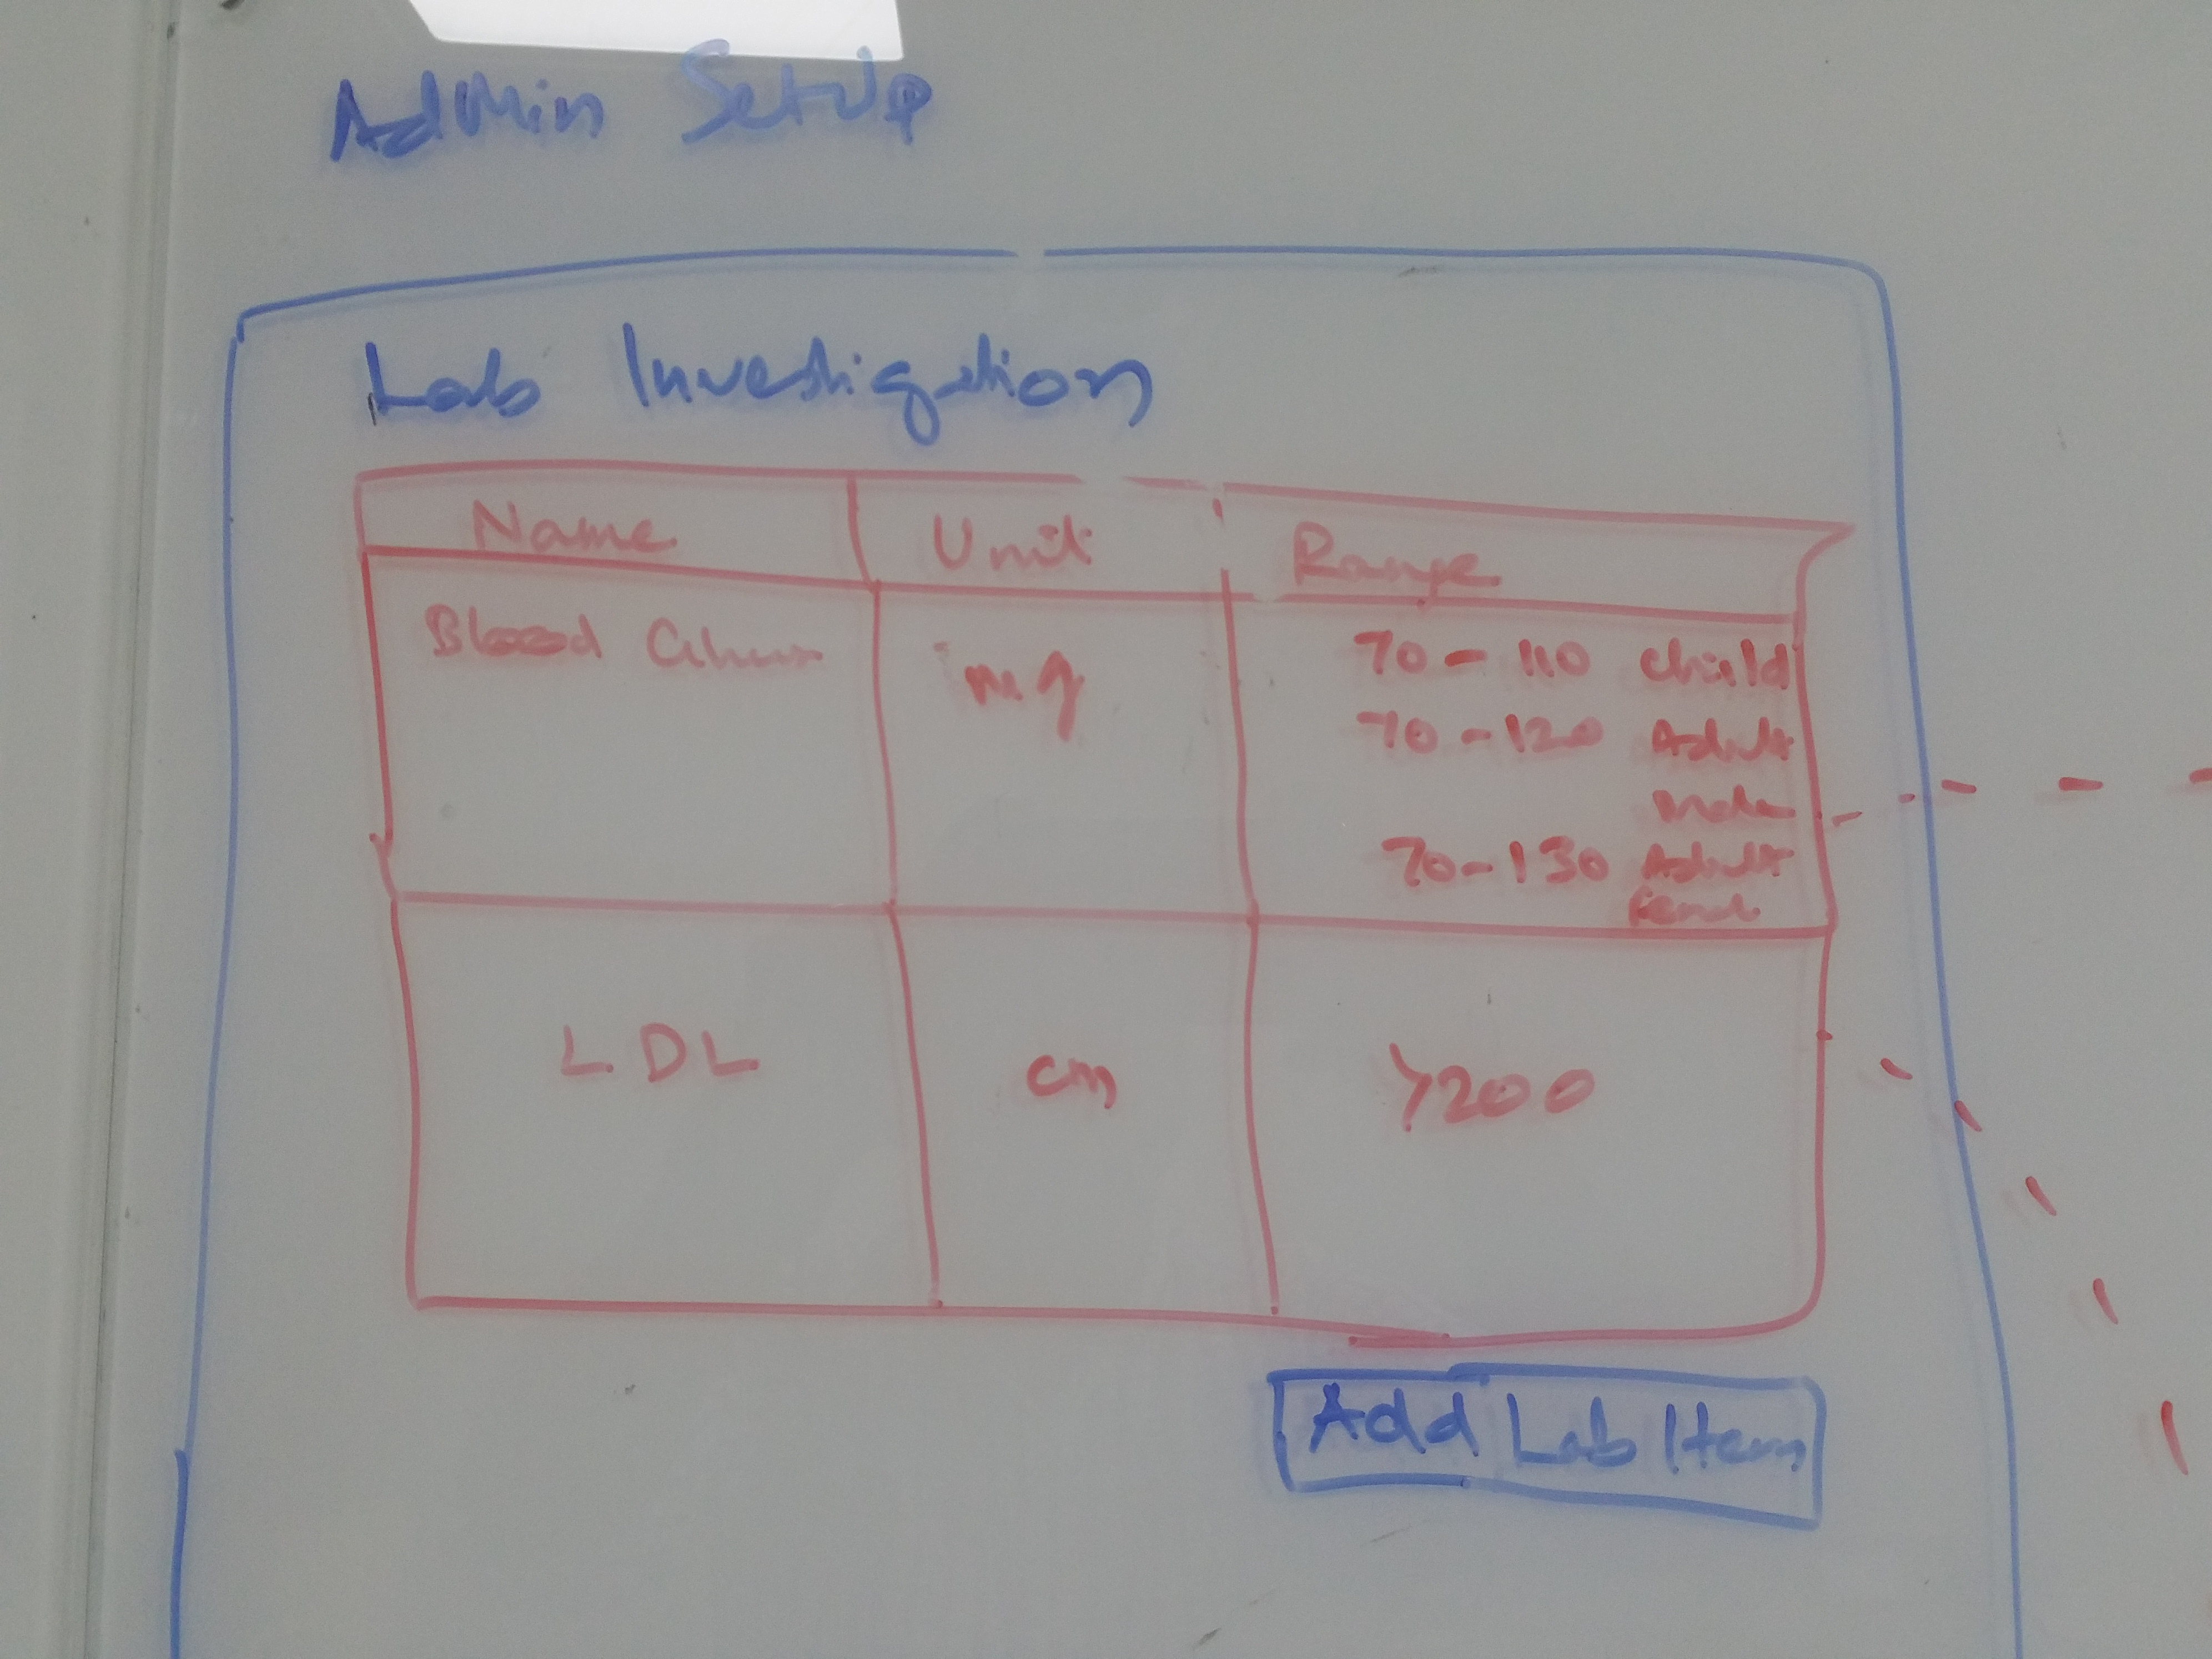 Admin Setup
Lab Investigation
Name Unit Range
Blood mg 70-110 Child
70-120 Adult
Male
70-130 Adult
LDL cm >200
Add Lab Item